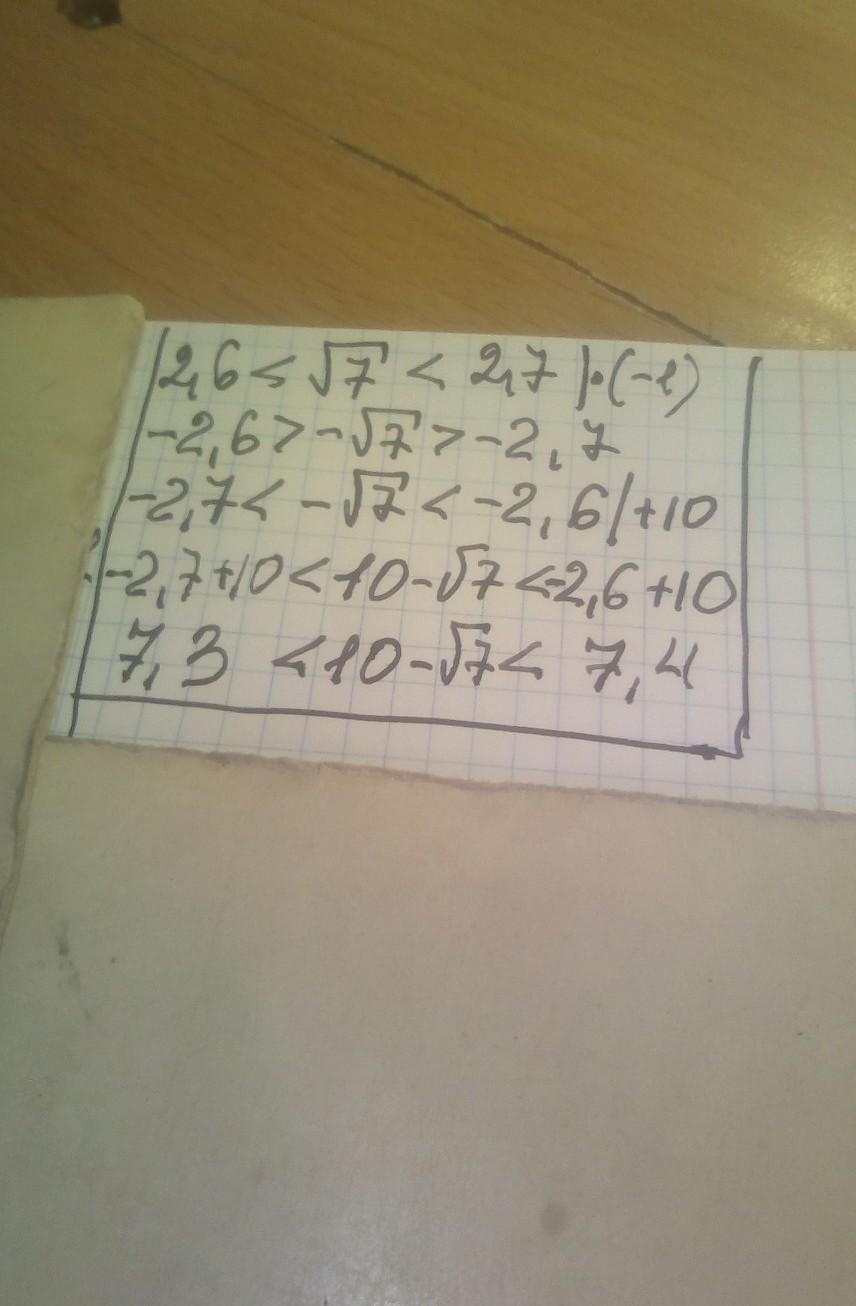 2,6 < √7 < 2,7 |·(-1)
-2,6 > -√7 > -2,7
-2,7 < -√7 < -2,6 | +10
-2,7+10 < 10-√7 < -2,6+10
7,3 < 10-√7 < 7,4